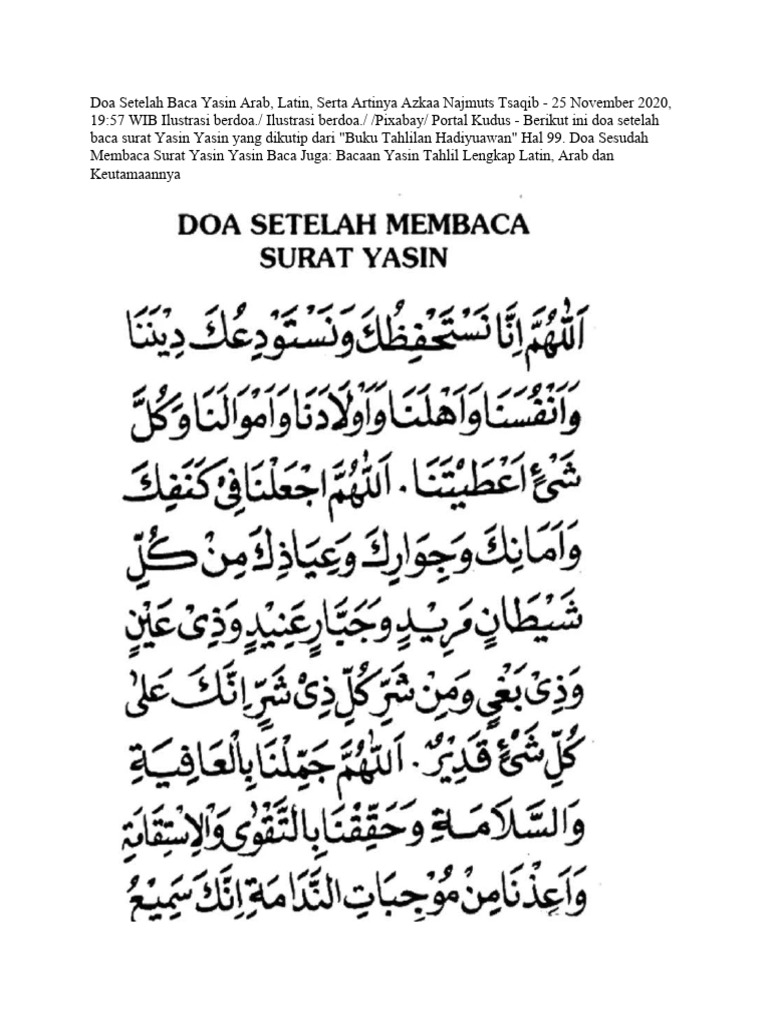 Doa Setelah Baca Yasin Arab, Latin, Serta Artinya Azkaa Najmuts Tsaqib - 25 November 2020,
19:57 WIB Ilustrasi berdoa./ Ilustrasi berdoa./ /Pixabay/ Portal Kudus - Berikut ini doa setelah
baca surat Yasin Yasin yang dikutip dari "Buku Tahlilan Hadiyuawan" Hal 99. Doa Sesudah
Membaca Surat Yasin Yasin Baca Juga: Bacaan Yasin Tahlil Lengkap Latin, Arab dan
Keutamaannya
DOA SETELAH MEMBACA
SURAT YASIN
اَللّٰهُمَّ اِنَّا نَسْتَحْفِظُكَ وَنَسْتَوْدِعُكَ دِيْنَنَا
وَاَنْفُسَنَا وَاَهْلَنَا وَاَوْلَادَنَا وَاَمْوَالَنَا وَكُلَّ
شَيْءٍ اَعْطَيْتَنَا. اَللّٰهُمَّ اجْعَلْنَا فِيْ كَنَفِكَ
وَاَمَانِكَ وَجِوَارِكَ وَعِيَاذِكَ مِنْ كُلِّ
شَيْطَانٍ مَرِيْدٍ وَجَبَّارٍ عَنِيْدٍ وَذِيْ عَيْنٍ
وَذِيْ بَغْيٍ وَمِنْ شَرِّ كُلِّ ذِيْ شَرٍّ اِنَّكَ عَلٰى
كُلِّ شَيْءٍ قَدِيْرٌ. اَللّٰهُمَّ جَمِّلْنَا بِالْعَافِيَةِ
وَالسَّلَامَةِ وَحَقِّقْنَا بِالتَّقْوٰى وَالْاِسْتِقَامَةِ
وَاَعِذْنَا مِنْ مُوْجِبَاتِ النَّدَامَةِ اِنَّكَ سَمِيْعُ